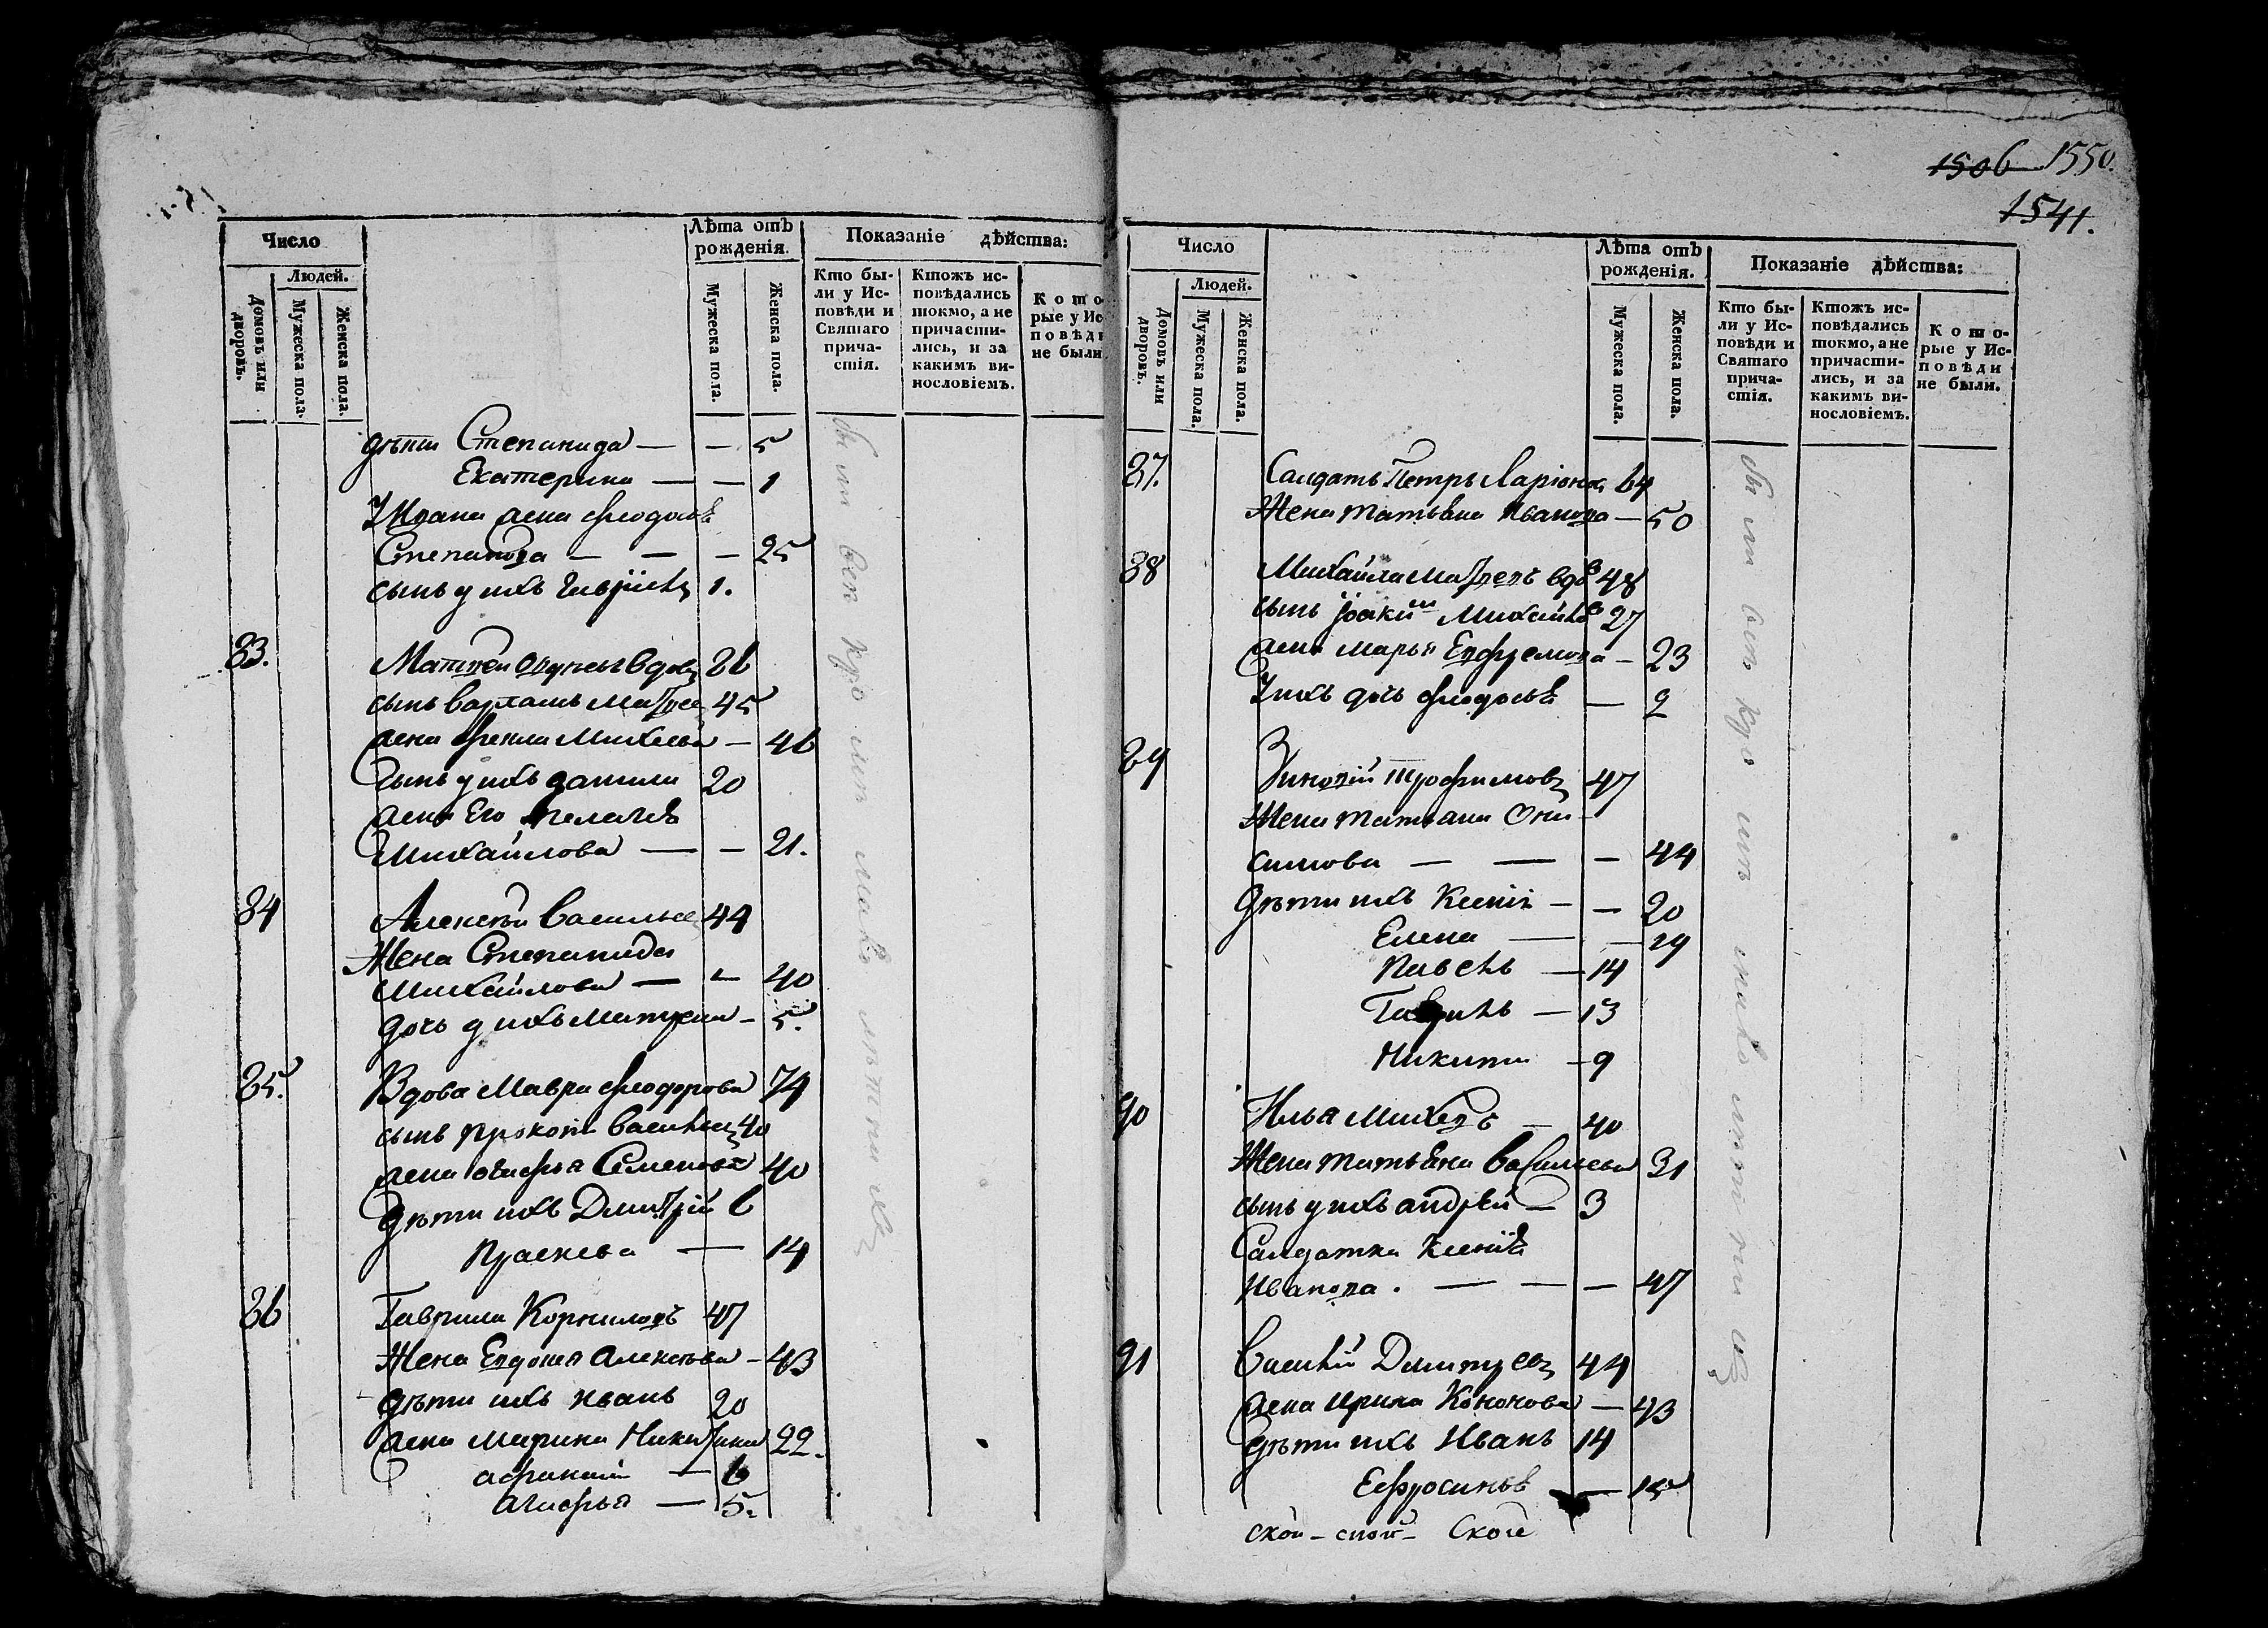 Число
Людей.
Домовъ или дворовъ.
Мужеска пола.
Женска пола.
Лѣта отъ рожденія.
Мужеска пола.
Женска пола.
Показаніе дѣйства:
Кто бы-
ли у Ис-
повѣди и
Святаго
прича-
стія.
Ктожъ ис-
повѣдались
токмо, а не
причасти-
лись, и за
какимъ ви-
нословіемъ.
Кото
рые у Ис
повѣд
не были
дѣти Степанида — — 5
Екатерина — — 1
У Ивана жена Феодосьѣ
Степанова — — — 25
сынъ у ихъ 1.
83. Матвеи вдовъ
сынъ Варламъ Матвее 45
жена Фекла Михеева — 46
Сынъ у ихъ Данила 20
жена Его Пелагеѣ
Михайлова — — 21.
84 Алексѣй Василье 44
Жена Степанида
Михайлова — — 40
дочь у ихъ Матрена — 5.
85. Вдова Мавра Феодорова 74
сынъ Прокопи Васильев 40
жена Агафья Семенова 40
дѣти ихъ Дмитрiй 6
Праскева — 14
86 Гаврила Корниловъ 47
Жена Евдокея Алексѣева — 43
дѣти ихъ Иванъ 20
жена Марина Никитина 22.
Афанасiй — 6
Агафья — 5.
1506 1550.
1541.
Число
Людей.
Домовъ или дворовъ.
Мужеска пола.
Женска пола.
Лѣта отъ рожденія.
Мужеска пола.
Женска пола.
Показаніе дѣйства:
Кто бы-
ли у Ис-
повѣди и
Святаго
прича-
стія.
Ктожъ ис-
повѣдались
токмо, а не
причасти-
лись, и за
какимъ ви-
нословіемъ.
Кото-
рые у Ис-
повѣди
не были.
87. Салдатъ Петръ Ларiонов 64
Жена Татьяна Иванова — 50
88 Михайла Матвевъ вдов 48
сынъ Iоаким Михайлов 27
жена Марья Евфремова — 23
У ихъ дочь Феодосьѣ — 2
89 Зиновiй Трофимовъ 47
Жена Татьяна Они-
симова — — — 44
Дѣти ихъ Ксенiѣ — — 20
Елена — — 19
Павелъ — 14
Гаврилъ — 13
Никита — 9
90 Илья Михевъ — 40
Жена Татьяна Васильева 31
сынъ у ихъ Андрѣй — 3
Салдатка Ксенiѣ
Иванова. — — — 47
91 Василiй Дмитреевъ 44
жена Ирина Кононова — 43
дѣти ихъ Иванъ 14
Ефросиньѣ — 15